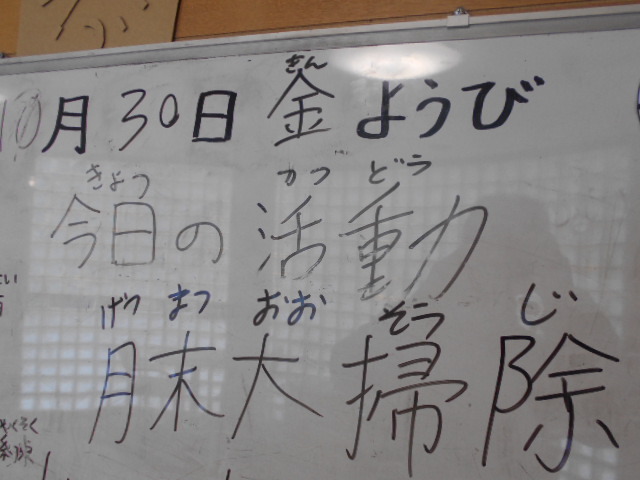 きん
10月30日 金ようび
きょう かつ どう
今日の活動
げつ まつ おお そう じ
月末大掃除